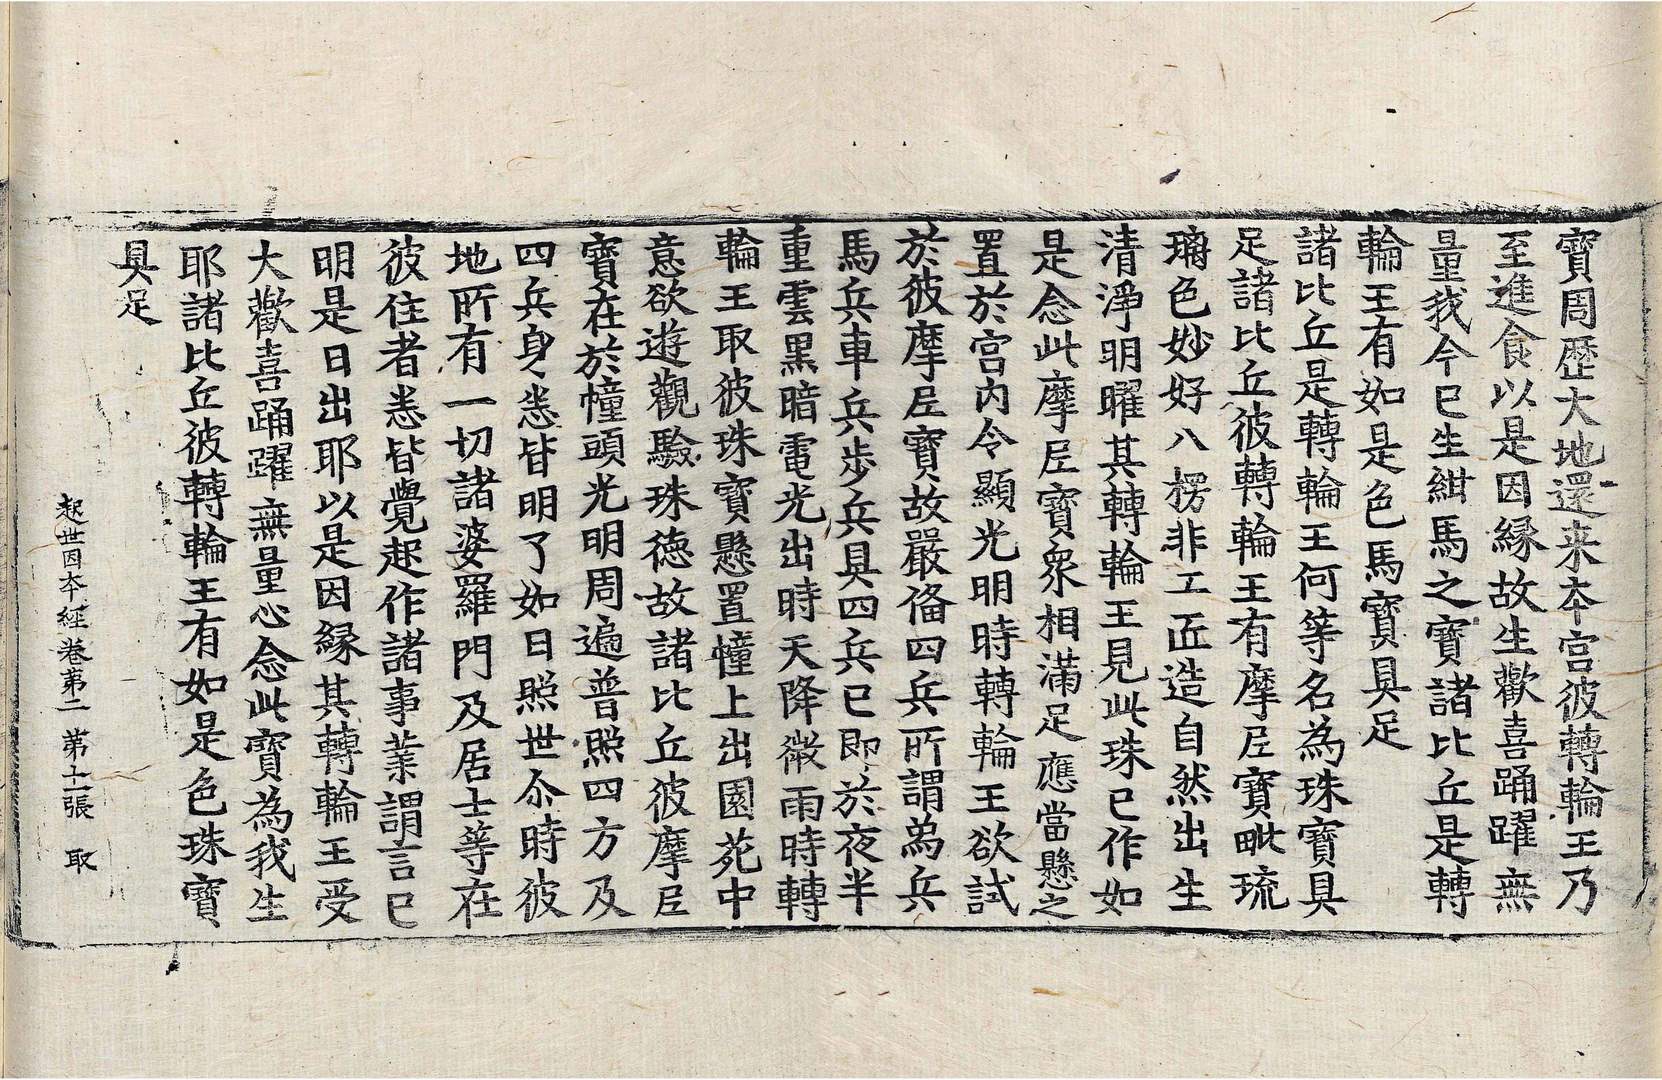 寶周歷大地還来本宮彼轉輪王乃
至進食以是因縁故生歡喜踊躍無
量我今已生紺馬之寶諸比丘是轉
輪王有如是色馬寶具足
諸比丘是轉輪王何等名為珠寶具
足諸比丘彼轉輪王有摩尼寶毗琉
璃色妙好八楞非工匠造自然出生
清淨明曜其轉輪王見此珠已作如
是念此摩尼寶衆相滿足應當懸之
置於宮内令顯光明時轉輪王欲試
於彼摩尼寶故嚴俻四兵所謂為兵
馬兵車兵歩兵具四兵已即於夜半
重雲黑暗電光出時天降微雨時轉
輪王取彼珠寶懸置幢上出園苑中
意欲遊觀驗珠德故諸比丘彼摩尼
寶在於幢頭光明周遍普照四方及
四兵身悉皆明了如日照世尒時彼
地所有一切諸婆羅門及居士等在
彼住者悉皆覺起作諸事業謂言已
明是日出耶以是因縁其轉輪王受
大歡喜踊躍無量心念此寶為我生
耶諸比丘彼轉輪王有如是色珠寶
具足
起世因本經卷第二 第十二張 取